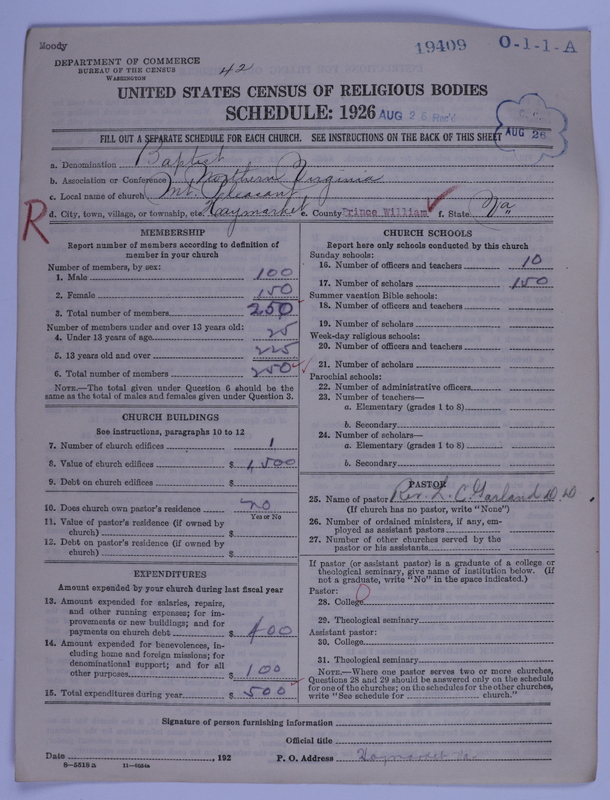 Moody
19409 O-1-1-A
DEPARTMENT OF COMMERCE
BUREAU OF THE CENSUS
WASHINGTON
42
UNITED STATES CENSUS OF RELIGIOUS BODIES
SCHEDULE: 1926
AUG 26 Rec'd
FILL OUT A SEPARATE SCHEDULE FOR EACH CHURCH. SEE INSTRUCTIONS ON THE BACK OF THIS SHEET
AUG 26
a. Denomination Baptist
b. Association or Conference Northern Virginia
c. Local name of church Mt. Pleasant
R
d. City, town, village, or township, etc. Haymarket e. County Prince William f. State Va
MEMBERSHIP
Report number of members according to definition of
member in your church
Number of members, by sex:
1. Male 100
2. Female 150
3. Total number of members 250
Number of members under and over 13 years old:
4. Under 13 years of age 25
5. 13 years old and over 225
6. Total number of members 250
NOTE.—The total given under Question 6 should be the
same as the total of males and females given under Question 3.
CHURCH BUILDINGS
See instructions, paragraphs 10 to 12
7. Number of church edifices 1
8. Value of church edifices $ 1,500
9. Debt on church edifices $
10. Does church own pastor's residence no
Yes or No
11. Value of pastor's residence (if owned by
church) $
12. Debt on pastor's residence (if owned by
church) $
EXPENDITURES
Amount expended by your church during last fiscal year
13. Amount expended for salaries, repairs,
and other running expenses; for im-
provements or new buildings; and for
payments on church debt $ 400
14. Amount expended for benevolences, in-
cluding home and foreign missions; for
denominational support; and for all
other purposes $ 100
15. Total expenditures during year $ 500
CHURCH SCHOOLS
Report here only schools conducted by this church
Sunday schools:
16. Number of officers and teachers 10
17. Number of scholars 150
Summer vacation Bible schools:
18. Number of officers and teachers
19. Number of scholars
Week-day religious schools:
20. Number of officers and teachers
21. Number of scholars
Parochial schools:
22. Number of administrative officers
23. Number of teachers—
a. Elementary (grades 1 to 8)
b. Secondary
24. Number of scholars—
a. Elementary (grades 1 to 8)
b. Secondary
PASTOR
25. Name of pastor Rev. L. C. Garland D. D
(If church has no pastor, write "None")
26. Number of ordained ministers, if any, em-
ployed as assistant pastors
27. Number of other churches served by the
pastor or his assistants
If pastor (or assistant pastor) is a graduate of a college or
theological seminary, give name of institution below. (If
not a graduate, write "No" in the space indicated.)
Pastor:
28. College O
29. Theological seminary
Assistant pastor:
30. College
31. Theological seminary
NOTE.—Where one pastor serves two or more churches,
Questions 28 and 29 should be answered only on the schedule
for one of the churches; on the schedules for the other churches,
write "See schedule for church."
Signature of person furnishing information
Official title
Date , 192 P. O. Address Haymarket Va.
8—5518 a